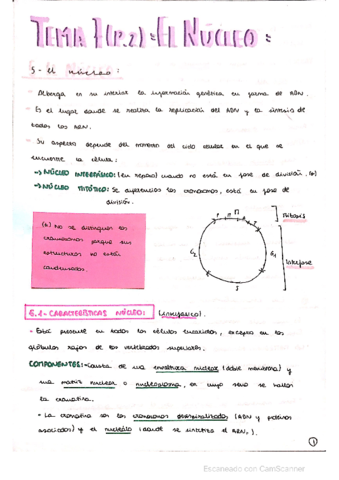 TEMA 7(P.2) = EL NÚCLEO =
5- el núcleo:
- Alberga en su interior la información genética en forma de ADN.
- Es el lugar donde se realiza la replicación del ADN y la síntesis de
todos los ARN.
- Su aspecto depende del momento del ciclo celular en el que se
encuentre la célula:
→ NÚCLEO INTERFÁSICO: (en reposo) cuando no está en fase de división. (*)
→ NÚCLEO MITÓTICO: Se diferencian los cromosomas, está en fase de
división.
(*) NO se distinguen los
cromosomas porque sus
estructuras no están
condensadas.
P M A T
Mitosis
G2
G1
Interfase
S
5.1- CARACTERÍSTICAS NÚCLEO: (interfásico).
- Está presente en todas las células eucariotas, excepto en los
glóbulos rojos de los vertebrados superiores.
COMPONENTES: - Consta de una envoltura nuclear (doble membrana) y
una matriz nuclear o nucleoplasma, en cuyo seno se hallan
la cromatina.
- La cromatina son los cromosomas despiralizados (ADN y proteínas
asociadas) y el nucléolo (donde se sintetiza el ARNr).
1
Escaneado con CamScanner